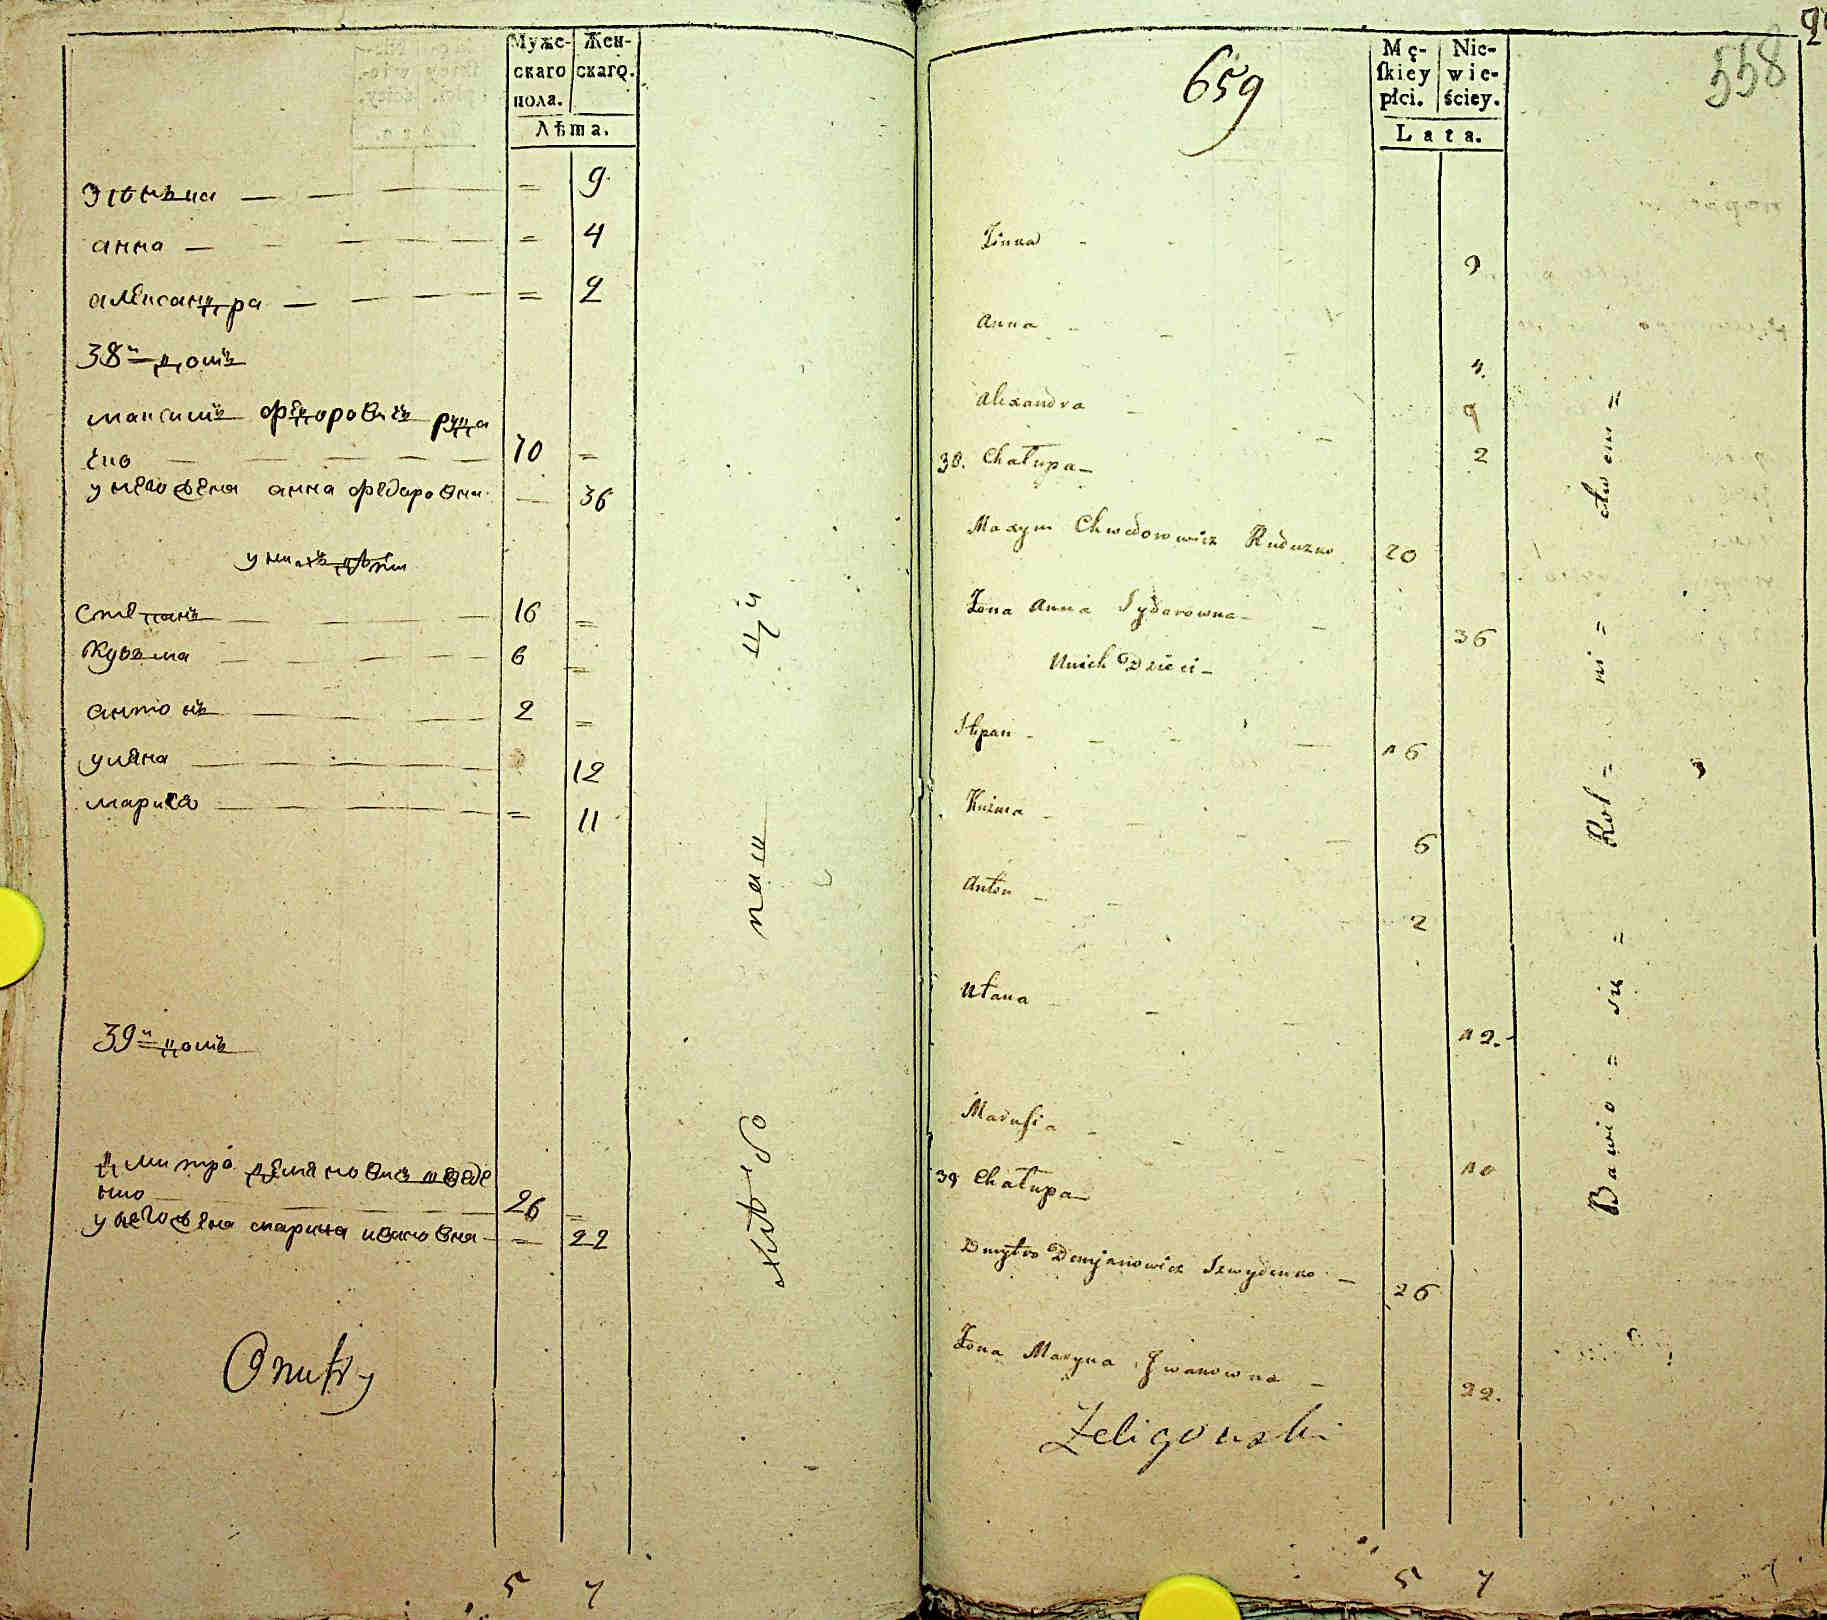 Муже-
скаго
пола.
Жен-
скаго.
Лѣта.
9
анна = 4
александра = 2
38й домъ
максимъ федоровичъ рудч
енко 70 =
у него жена анна федоровна — 36
у нихъ дѣти
степанъ 16 =
Кузьма 6 =
антонъ 2 =
уляна 12
маруся = 11
39й домъ
дмитро демяновичъ шведе
нко 26 =
у него жена марина ивановна = 22
5 7
659
Mę-
ſkiey
płci.
Nie-
wie-
ściey.
Lata.
558
9
Anna 4.
Alexandra 2
38. Chałupa
Maxym Chwedorowicz 20
Żona Anna Sydorowna 36
Unich Dzieci
Stepan 16
Kuźma 6
Anton 2
Ułana 12.
Marusia 10
39 Chałupa
Dmytro Demjanowicz Szwydenko 26
Żona Maryna Iwanowna 22.
Zeligowski
5 7
Bawio = się = Rol = ni = ctwem =